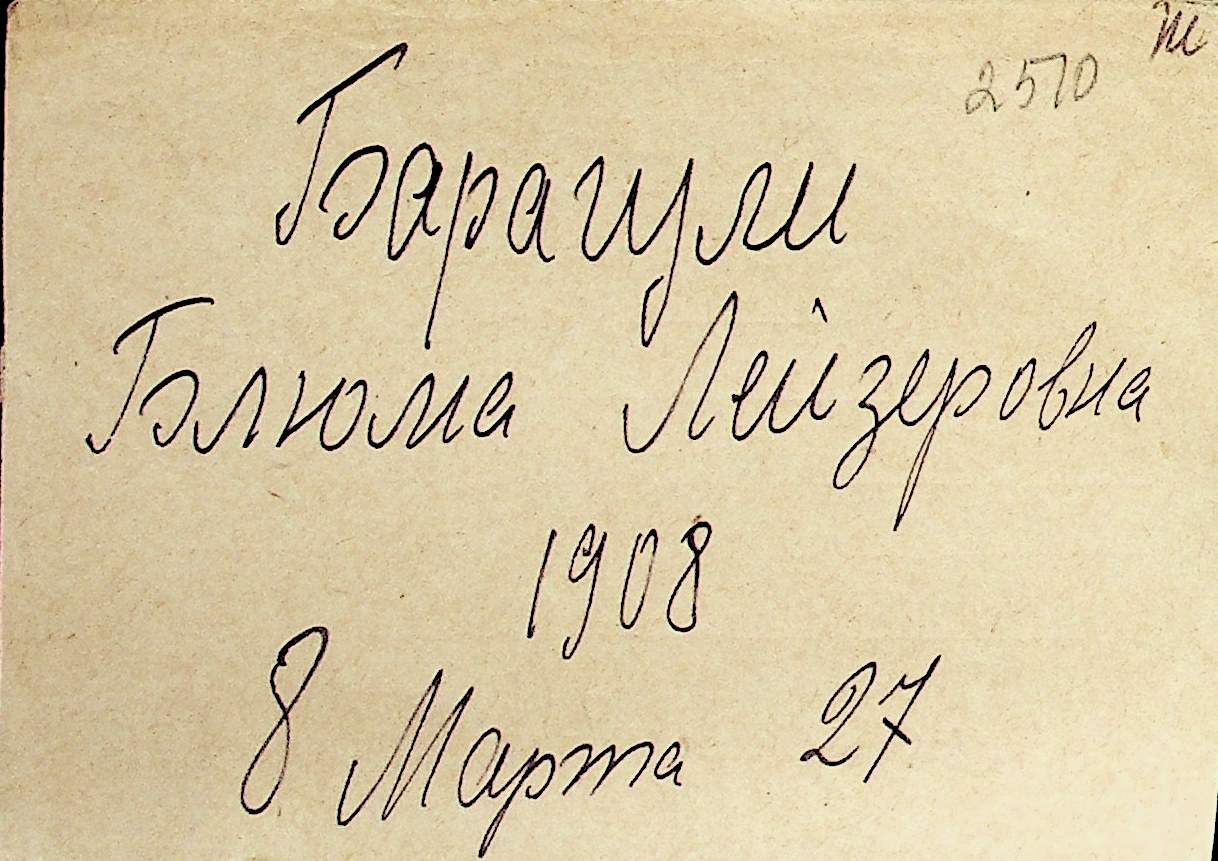 2510
Барагули
Блюма Лейзеровна
1908
8 Марта 27